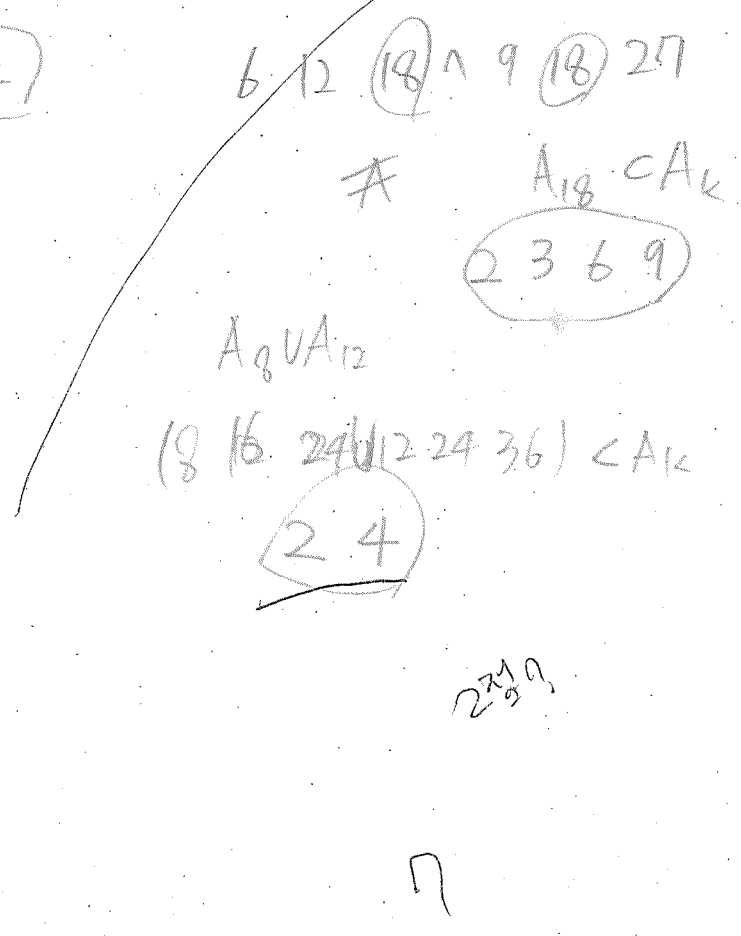 6 12 18 ∩ 9 18 27
A₁₈ ⊂ Aₖ
2 3 6 9
A₈ ∪ A₁₂
(8 16 24 ∪ 12 24 36) ⊂ Aₖ
2 4
7